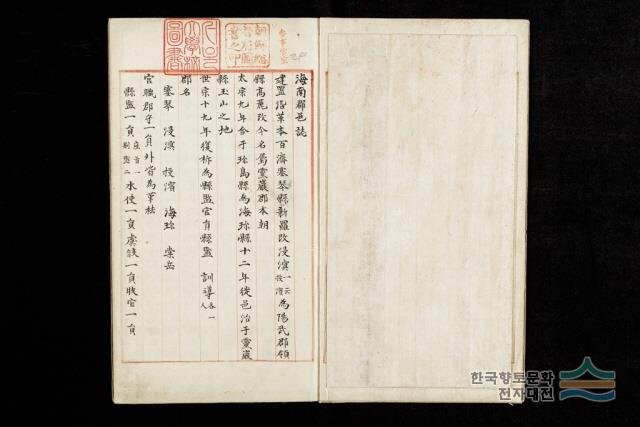 海南郡邑誌
建置沿革本百濟塞琴縣新羅改浸溟一云投濱為陽武郡領
縣高麗改今名屬靈巖郡本朝
太宗九年合于珍島縣為海珍縣十二年徙邑治于靈巖
縣玉山之地
世宗十九年復析為縣監官有縣監 訓導各一人
郡名
塞琴 浸溟 投濱 海珍 棠岳
官職郡守一員外皆為革祛
縣監一員座首一別監二水使一員虞候一員牧官一員
한국향토문화
전자대전